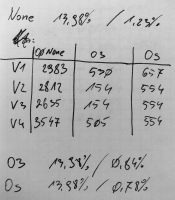 None 13,98% / 1,23%
None O3 Os
V1 2983 530 657
V2 2812 154 554
V3 2635 154 554
V4 3547 505 554
O3 13,38% / 0,64%
Os 13,98% / 0,78%